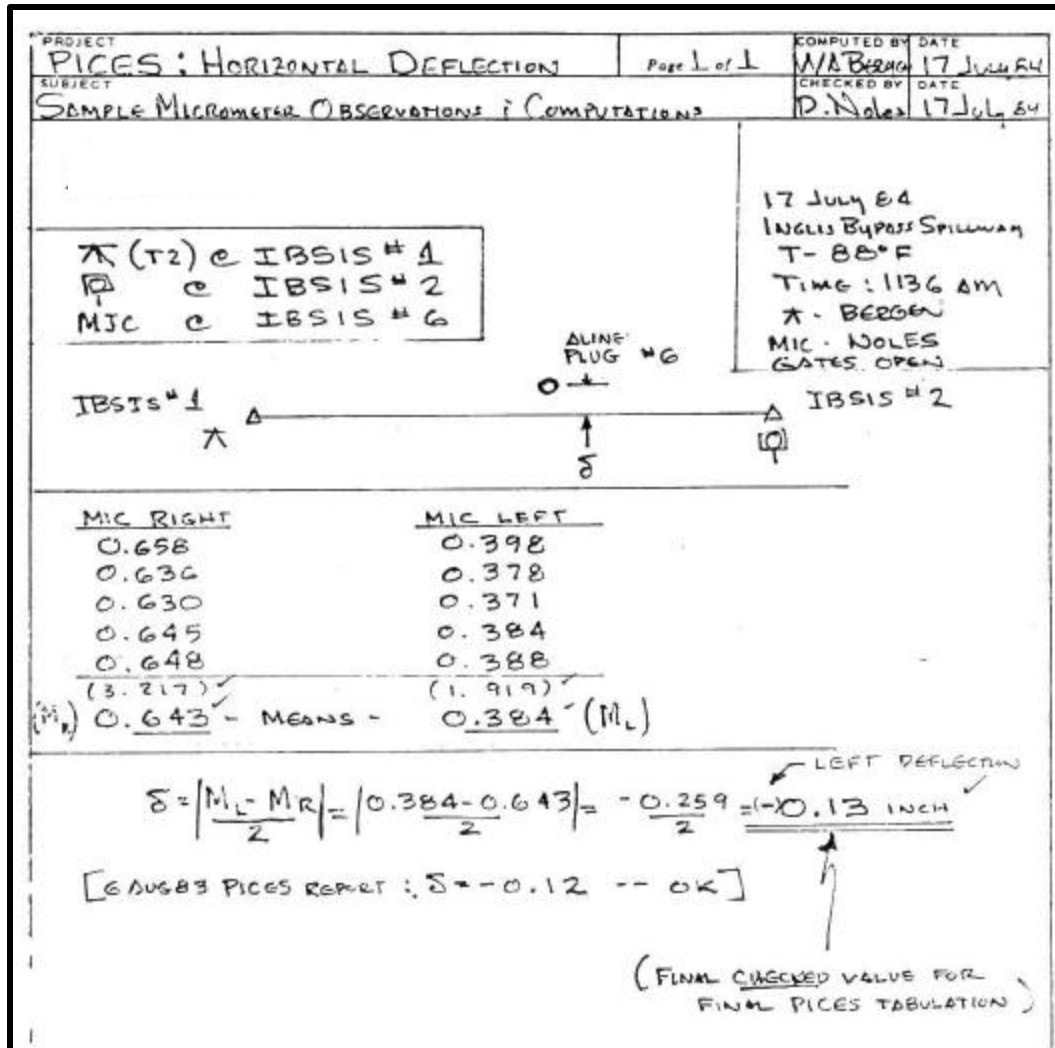 PROJECT
PICES : HORIZONTAL DEFLECTION
Page 1 of 1
COMPUTED BY
DATE
17 July 84
SUBJECT
SAMPLE MICROMETER OBSERVATIONS & COMPUTATIONS
CHECKED BY
D. Noles
DATE
17 July 84
17 July 84
INGLIS BYPASS SPILLWAY
T- 88°F
TIME : 1136 AM
BERGEN
MIC - NOLES
GATES OPEN
(T2) @ IBSIS # 1
@ IBSIS # 2
MIC @ IBSIS # 6
ALINE
PLUG #6
IBSIS # 1
IBSIS # 2
δ
MIC RIGHT MIC LEFT
0.658 0.398
0.636 0.378
0.630 0.371
0.645 0.384
0.648 0.388
(3.217) ✓ (1.919) ✓
(M_R) 0.643 ✓ - MEANS - 0.384 ✓ (M_L)
LEFT DEFLECTION ✓
δ = |M_L - M_R / 2| = |0.384 - 0.643 / 2| = -0.259 / 2 = (-)0.13 INCH
[6 AUG 83 PICES REPORT : δ = -0.12 -- OK]
(FINAL CHECKED VALUE FOR
FINAL PICES TABULATION)